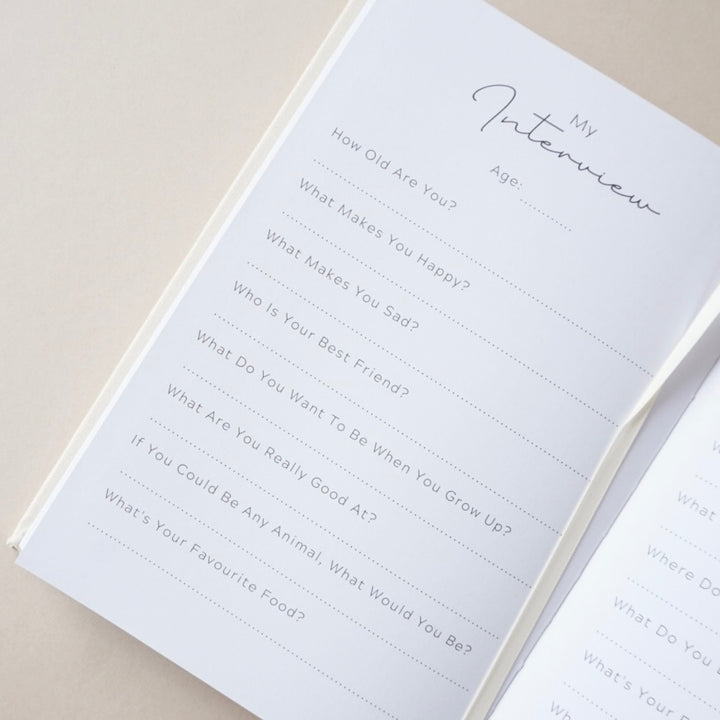 My
Interview
Age:
How Old Are You?
What Makes You Happy?
What Makes You Sad?
Who Is Your Best Friend?
What Do You Want To Be When You Grow Up?
What Are You Really Good At?
If You Could Be Any Animal, What Would You Be?
What's Your Favourite Food?
What
Where Do
What Do You
What's Your